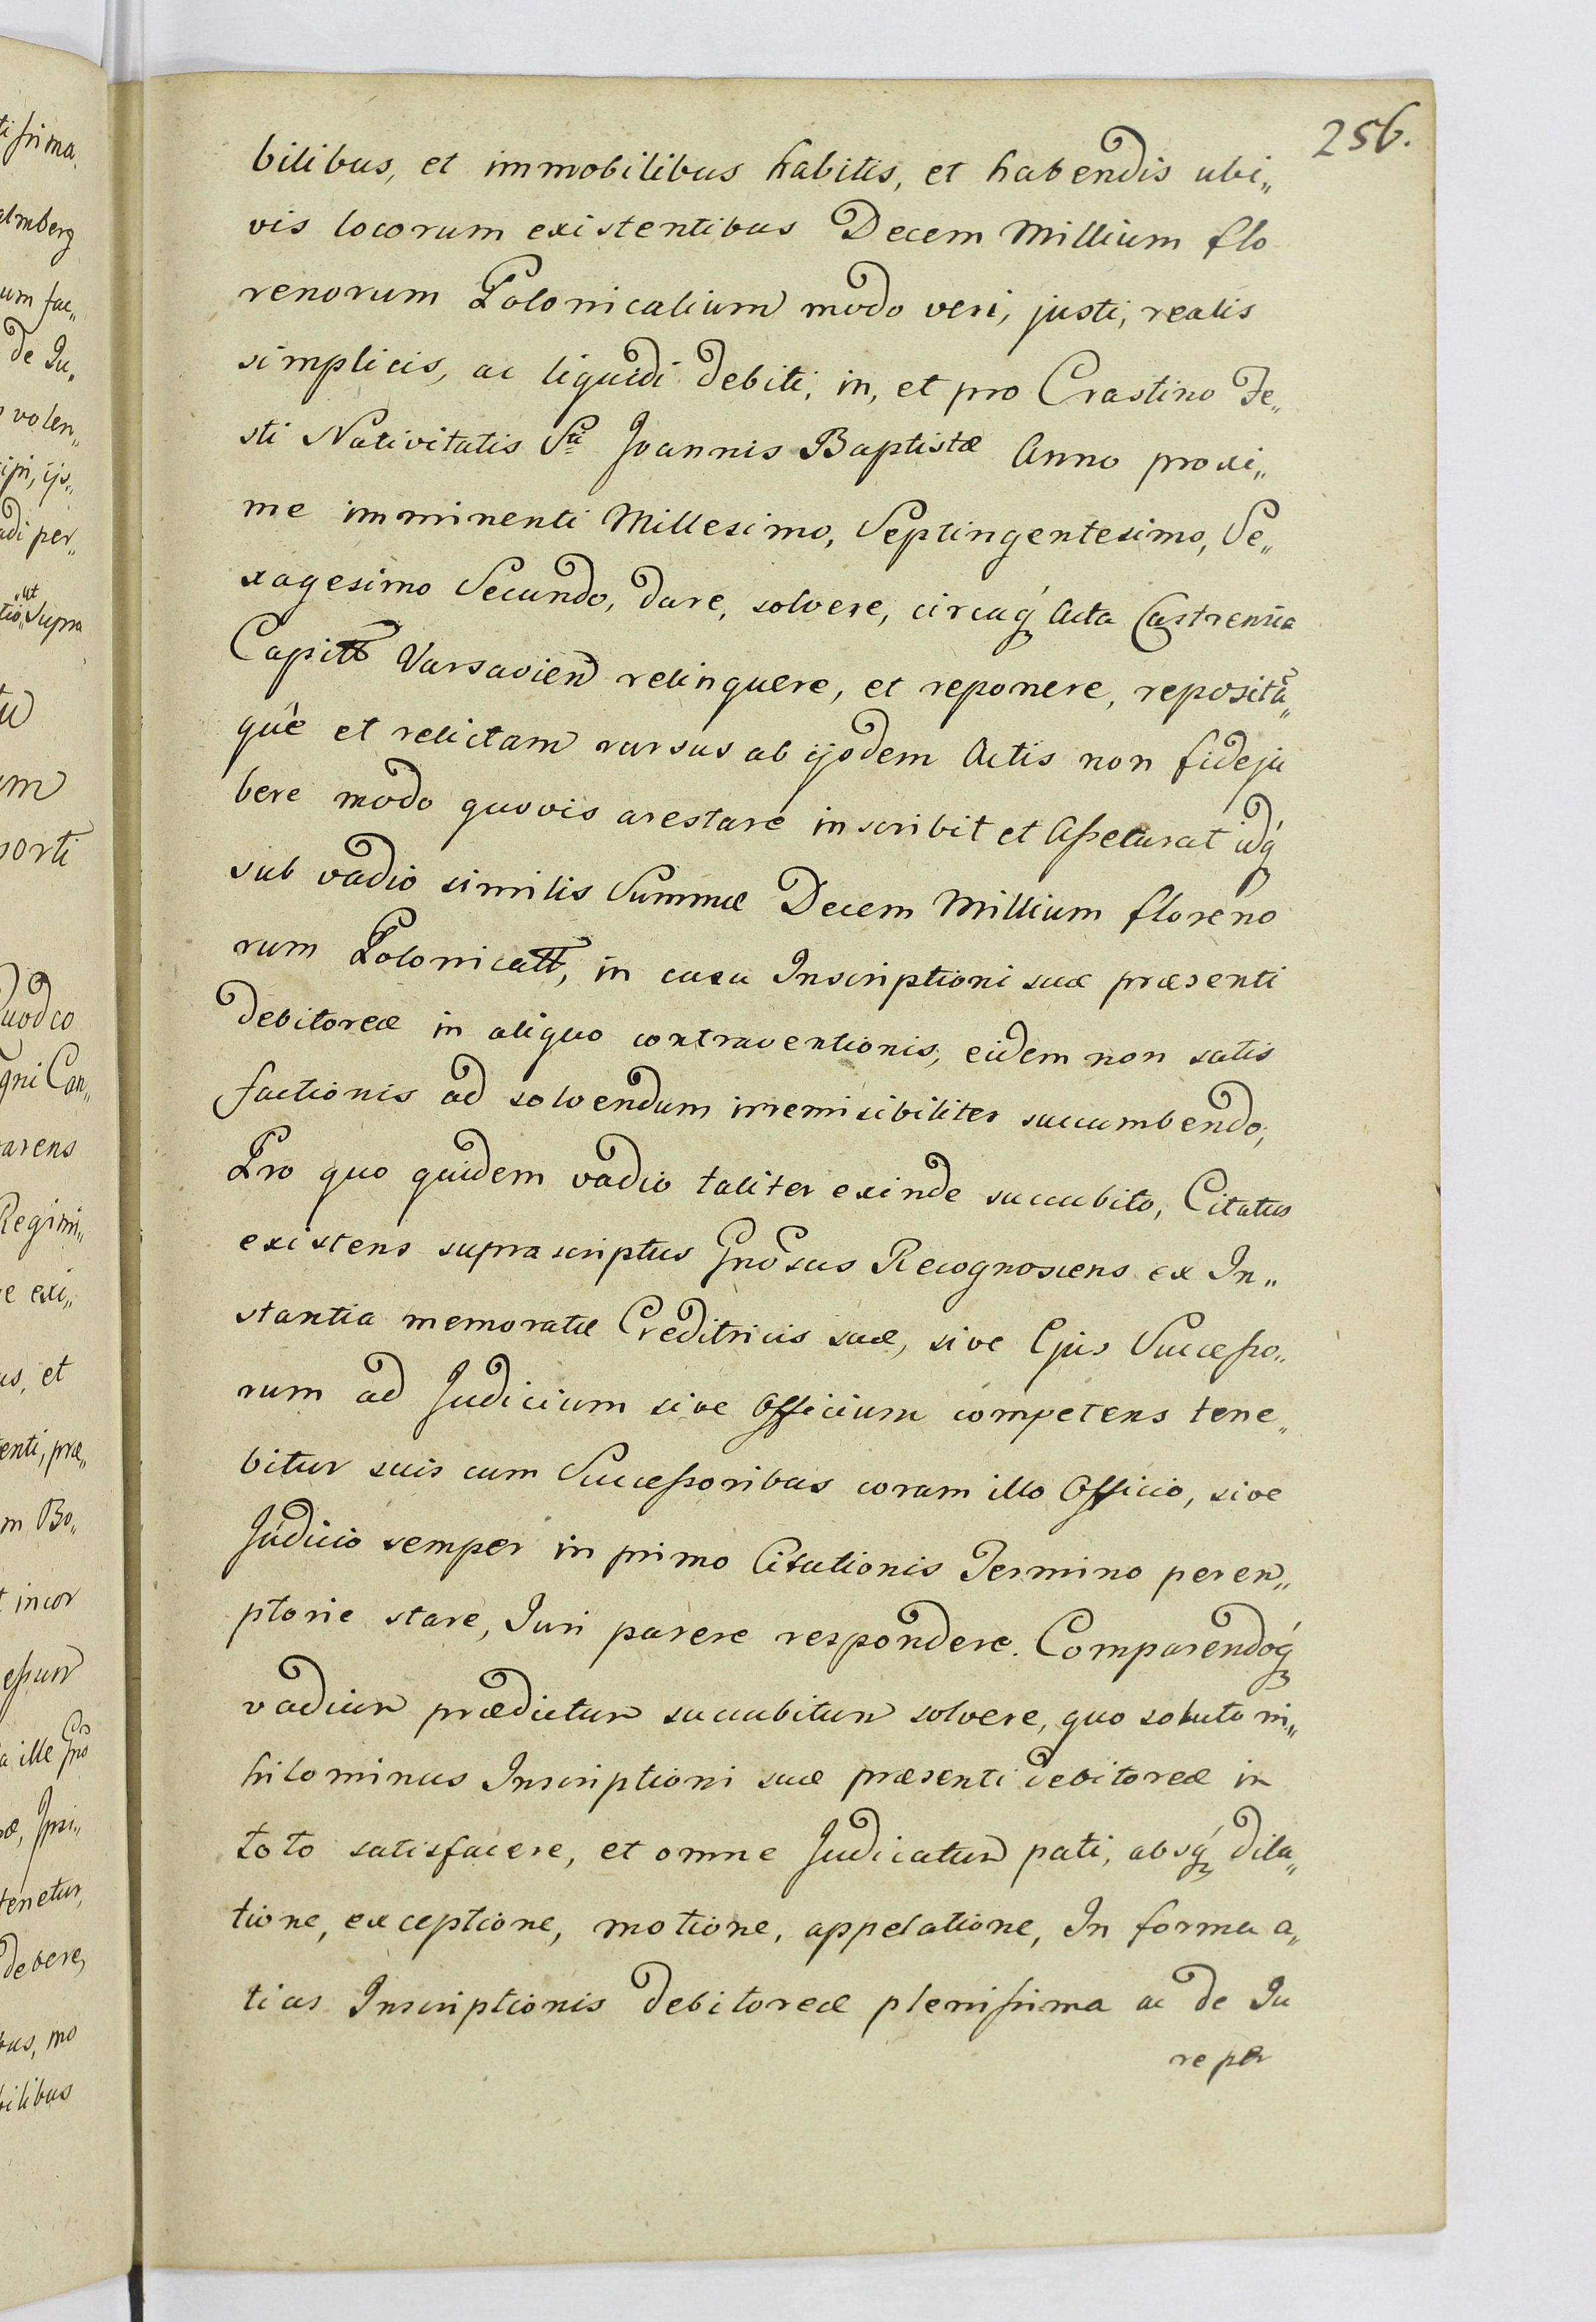 256.
bilibus, et immobilibus habitis, et habendis ubi„
vis locorum existentibus Decem Millium flo
renorum Polonicalium modo veri, justi, realis
simplicis, ac liquidi debiti, in, et pro Crastino Fe„
sti Nativitatis Sti Joannis Baptistæ Anno proxi„
me imminenti Millesimo, Septingentesimo, Se„
xagesimo Secundo, dare, solvere, circaq́ Acta Castrensia
Capitt Varsavien relinquere, et reponere, repositã„
què et relictam rursus ab ijsdem Actis non fideju
bere modo quovis arestare inscribit et Assecurat idq́
sub vadio similis Summæ Decem Millium floreno
rum Polonicatt, in casu Inscriptioni suæ præsenti
debitoreæ in aliquo contraventionis, eidem non satis
factionis ad solvendum irremisibiliter succumbendo;
Pro quo quidem vadio taliter exinde succubito, Citatus
existens suprascriptus Gnosus Recognoscens ex In„
stantia memoratæ Creditricis suæ, sive Ejus Successo„
rum ad Judicium sive Officium competens tene„
bitur suis cum Successoribus coram illo Officio, sive
Judicio semper in primo Citationis Termino peren„
ptorie stare, Juri parere respondere. Comparendoq́
vadium prædictum succubitum solvere, quo soluto ni„
hilominus Inscriptioni suæ præsenti debitoreæ in
toto satisfacere, et omne Judicatum pati, absq́ dila„
tione, exceptione, motione, appelatione, In forma a„
lias Inscriptionis debitoreæ plenissima ac de Ju
re per
tissima
almberg
um fac„
de Ju„
volen„
adi per„
ut
Supra
um
porti
Quod co
gni Can„
parens
Regimi„
us, et
enti, præ„
m Bo„
t incor
a ille Gno
tenetur,
debere,
bus, mo
bilibus